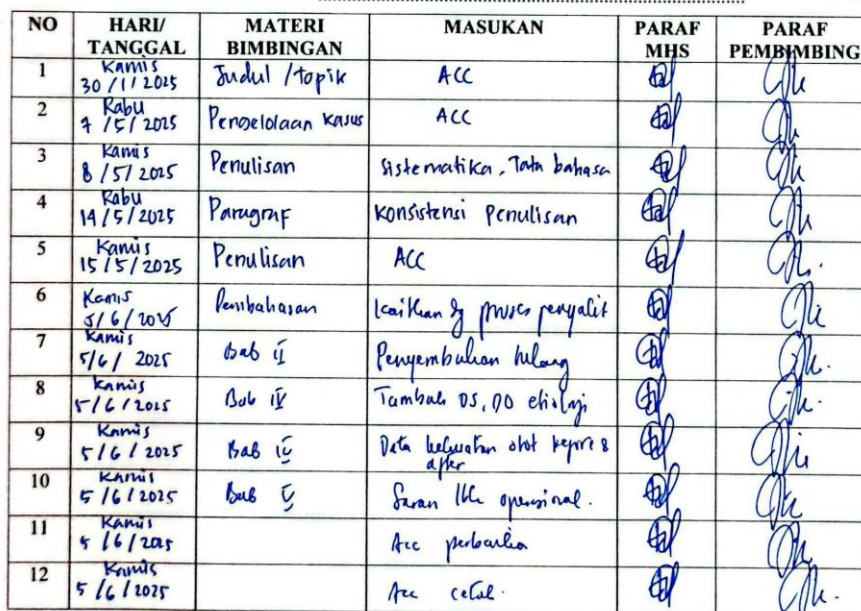 NO HARI/ TANGGAL MATERI BIMBINGAN MASUKAN PARAF MHS PARAF PEMBIMBING
1 Kamis 30/1/2025 Judul/topik ACC
2 Rabu 7/5/2025 Pengelolaan Kasus ACC
3 Kamis 8/5/2025 Penulisan Sistematika, Tata bahasa
4 Rabu 14/5/2025 Paragraf Konsistensi Penulisan
5 Kamis 15/5/2025 Penulisan ACC
6 Kamis 5/6/2025 Pembahasan Kaitkan dg proses penyakit
7 Kamis 5/6/2025 Bab II Penyembuhan tulang
8 Kamis 5/6/2025 Bab IV Tambah DS, DO etiologi
9 Kamis 5/6/2025 Bab IV Data kekuatan otot before & after
10 Kamis 5/6/2025 Bab V Saran lbh operasional.
11 Kamis 5/6/2025 Acc perbaikan
12 Kamis 5/6/2025 Acc cetak.